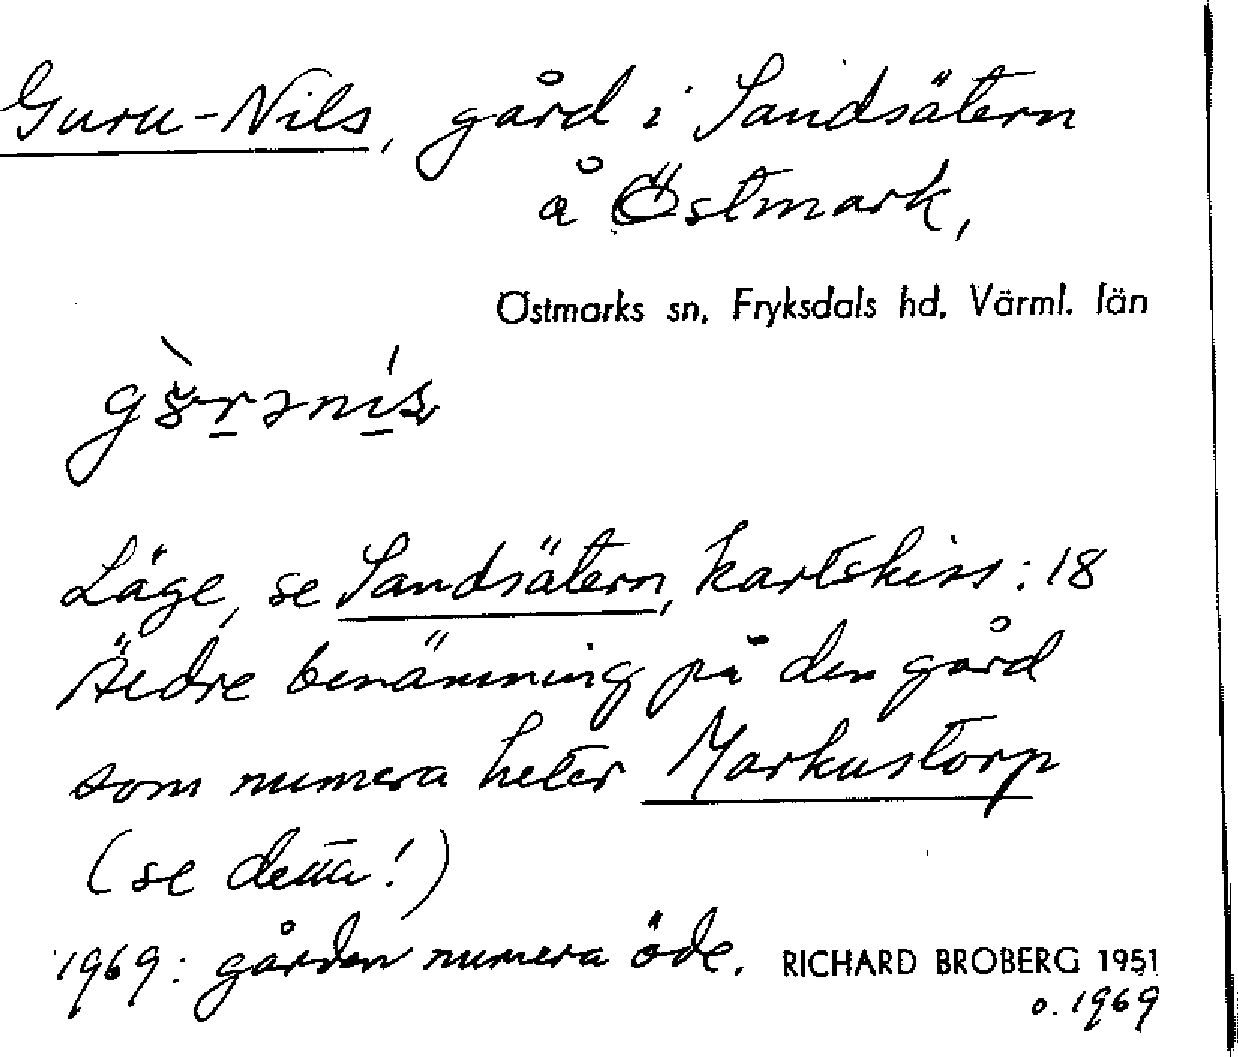 Guru-Nils, gård i Sandsätern
å Östmark,
Östmarks sn, Fryksdals hd, Värml. län
Läge, se Sandsätern, kartskiss: 18
Äldre benämning på den gård
som numera heter Markustorp
(se detta!)
1969: gården numera öde. RICHARD BROBERG 1951
o. 1969